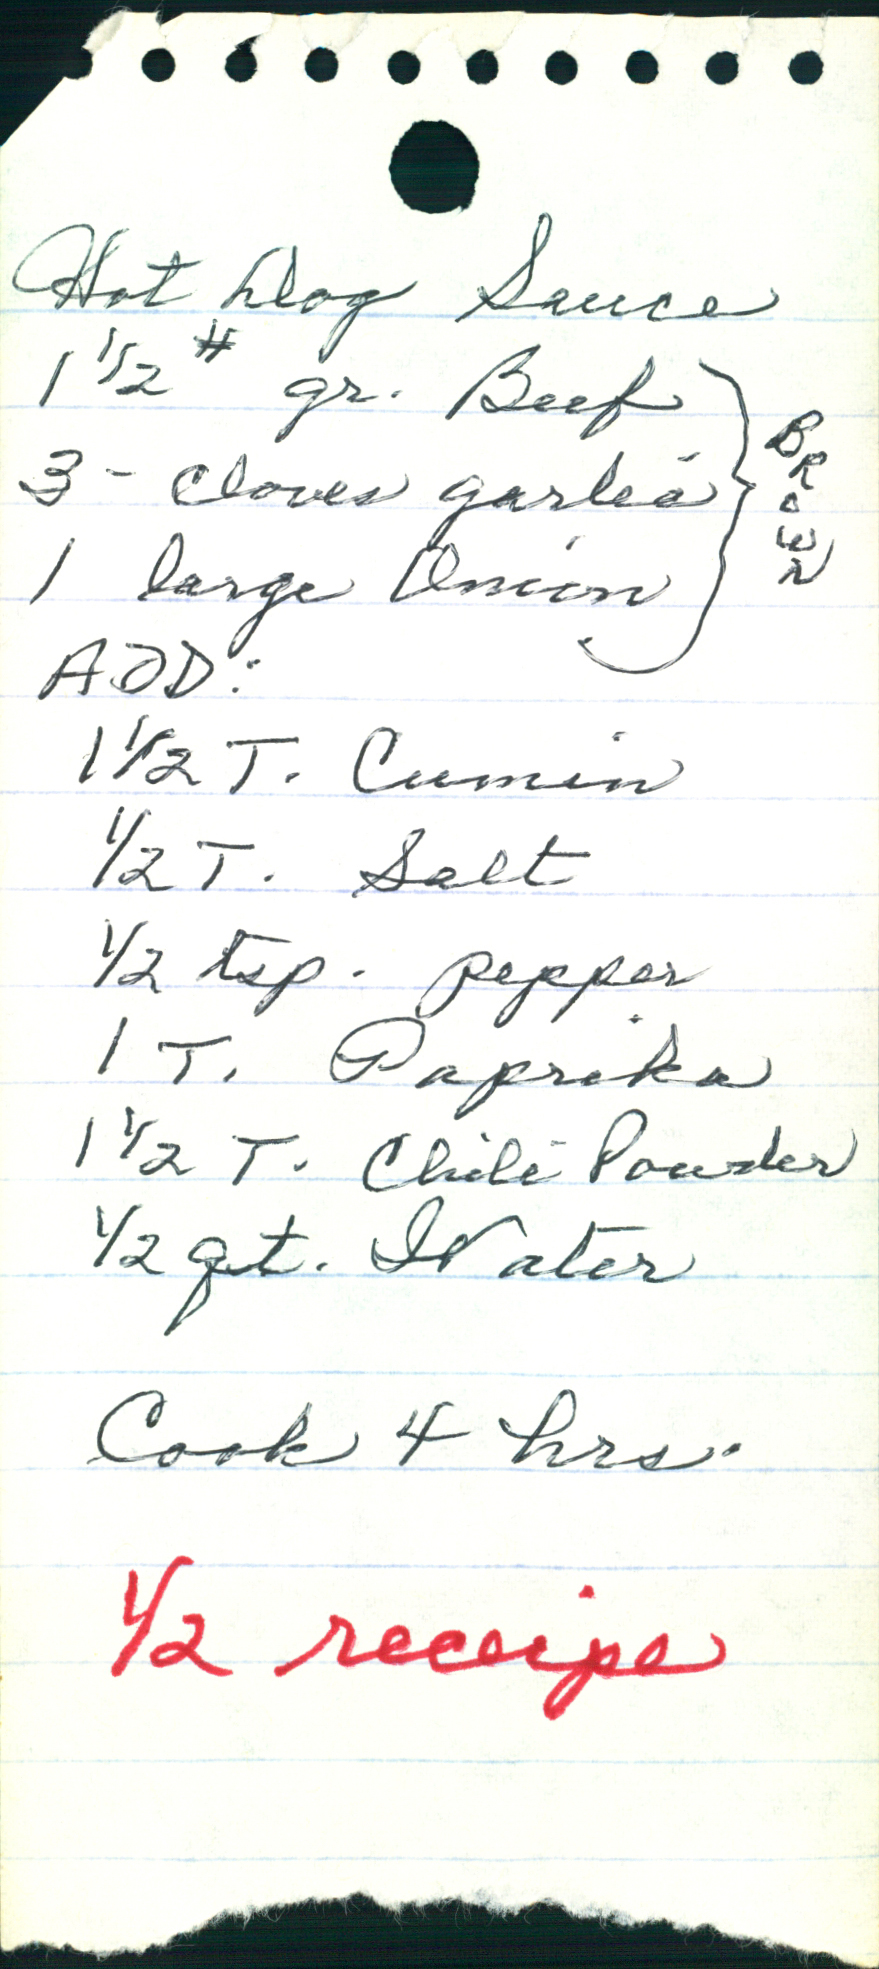 Hot Dog Sauce
1 1/2 # gr. Beef
3 - cloves garlic
1 large Onion
BROWN
ADD:
1 1/2 T. Cumin
1/2 T. Salt
1/2 tsp. pepper
1 T. Paprika
1 1/2 T. Chili Powder
1/2 qt. Water
Cook 4 hrs.
1/2 receipe